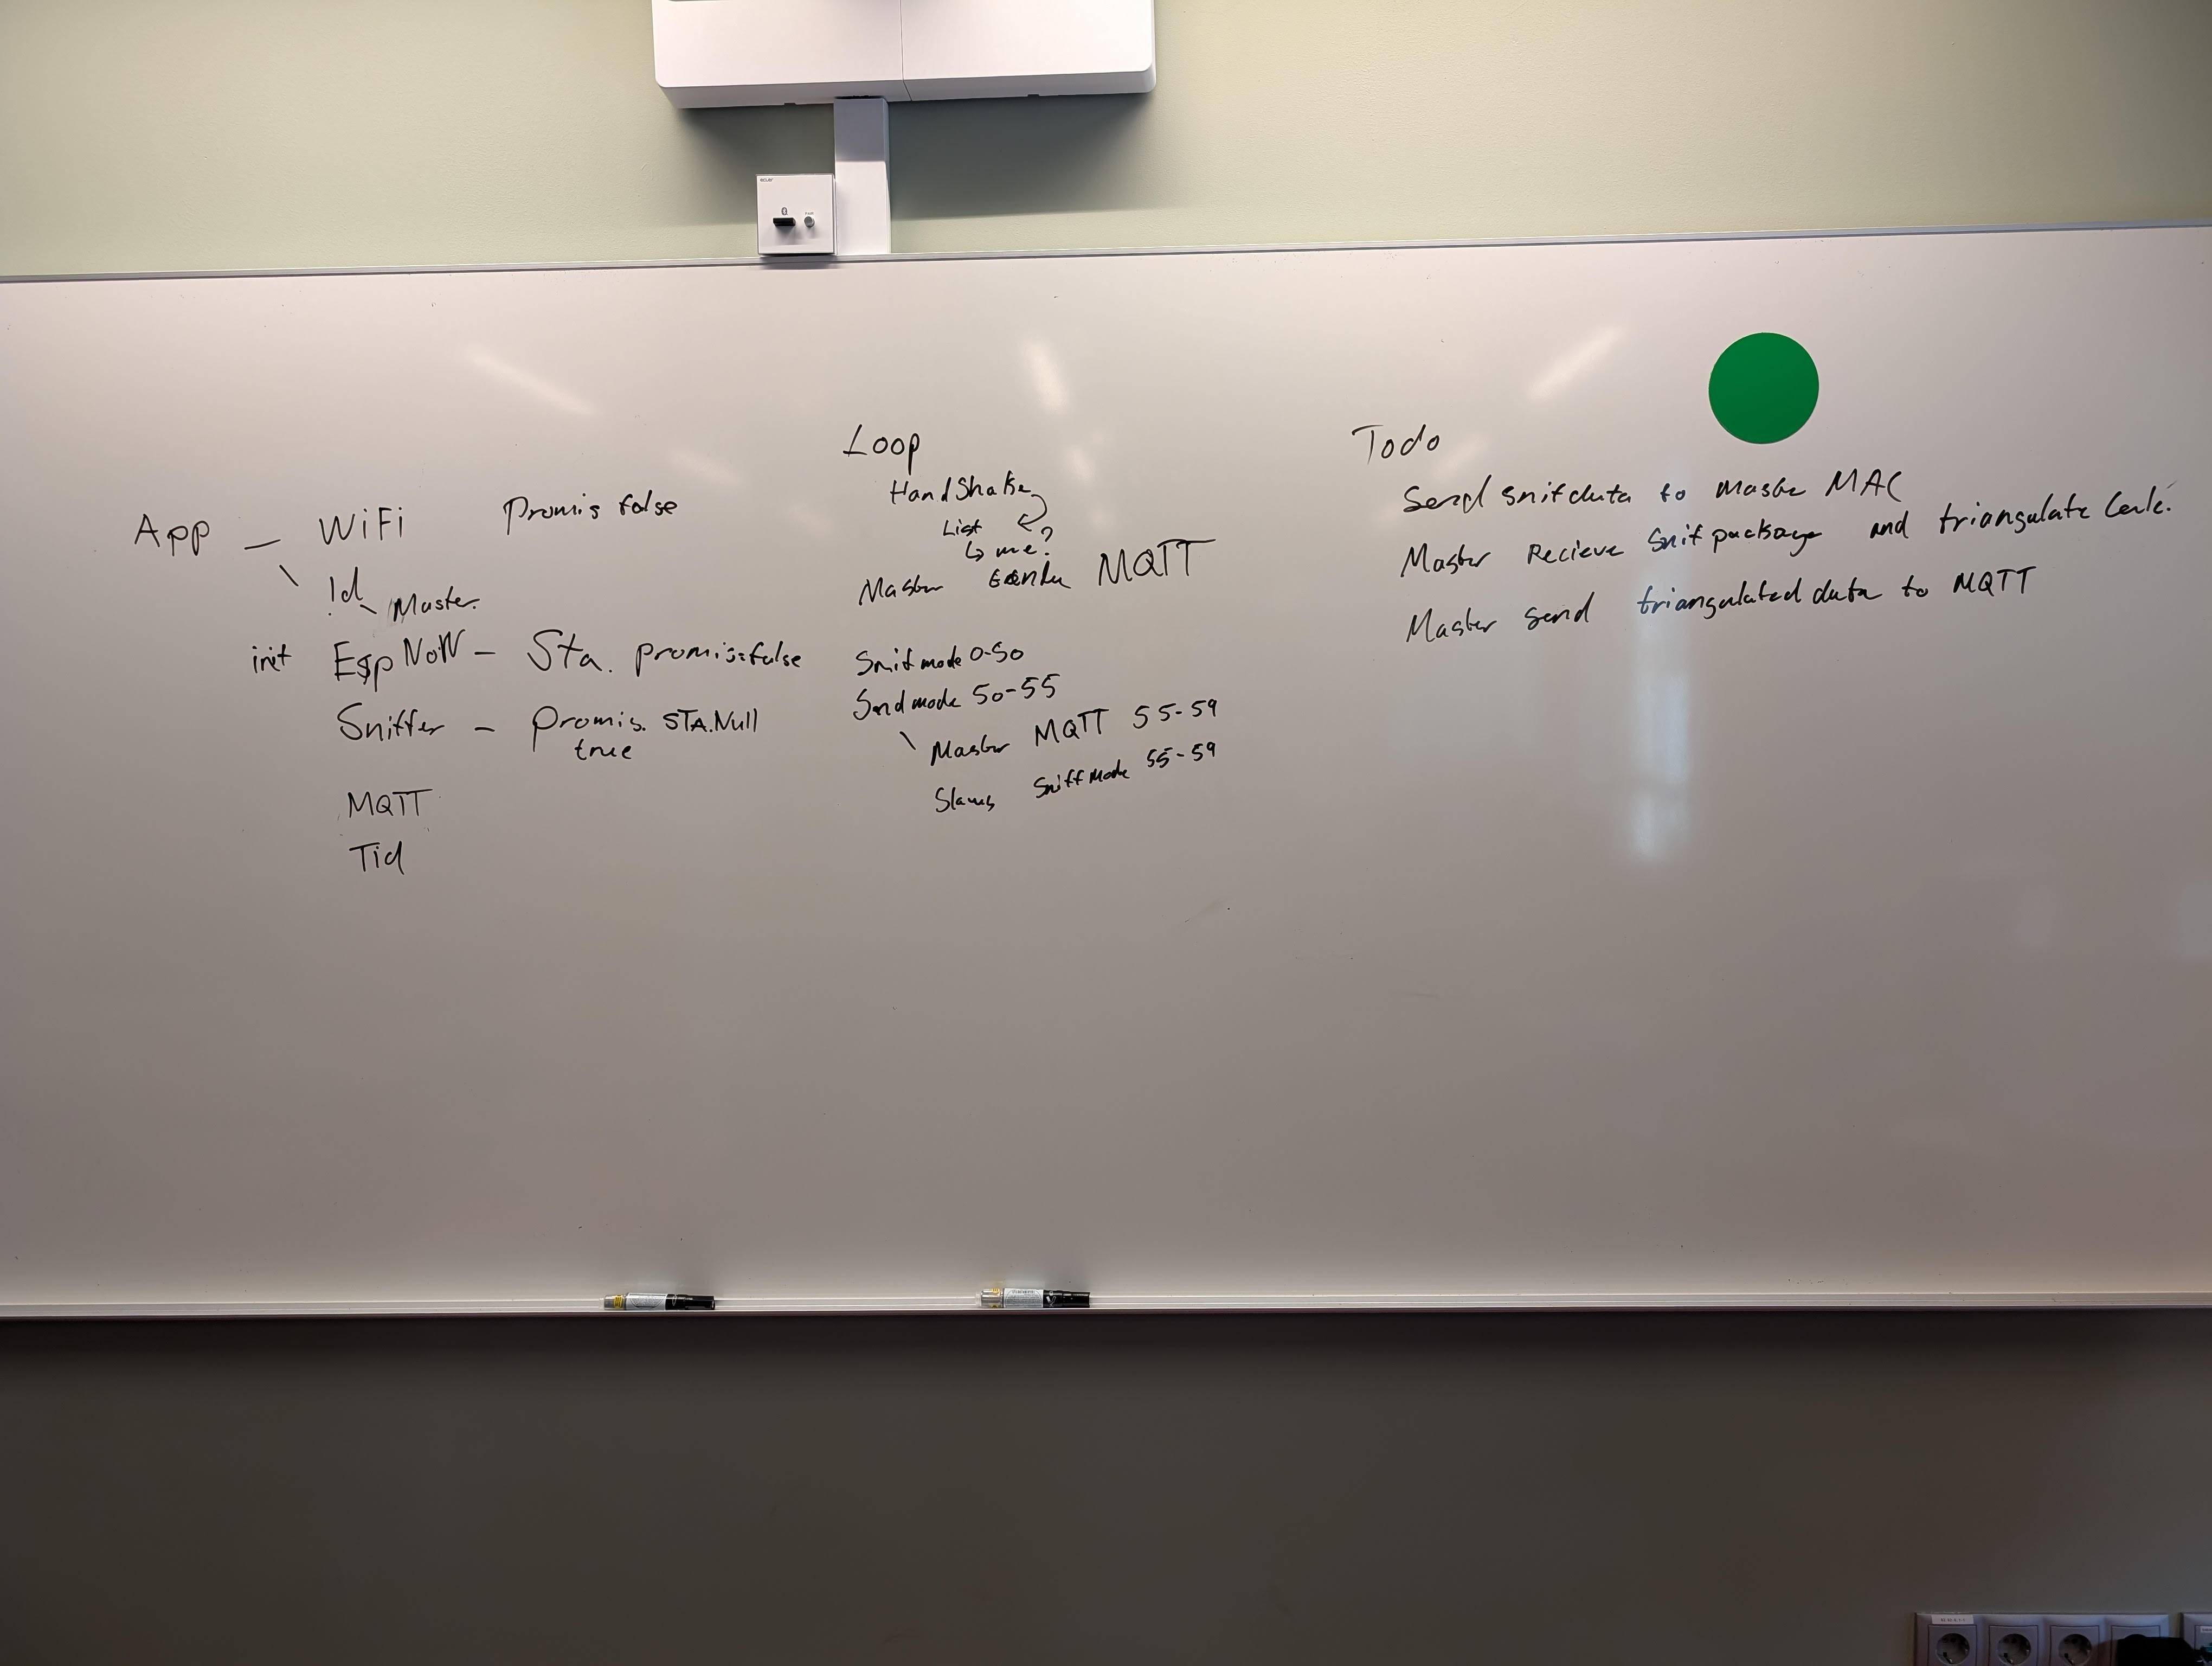 App — WiFi Promis false
Id
Master
init EspNoW – Sta. promis=false
Sniffer – Promis. STA.Null
true
MQTT
Tid
Loop
HandShake
List
me?
Master MQTT
Snifmode 0-50
Sendmode 50-55
Master MQTT 55-59
Slaves SniffMode 55-59
Todo
Send snifdata to Master MAC
Master Recieve Snifpackage and triangulate Calc.
Master send triangulated data to MQTT